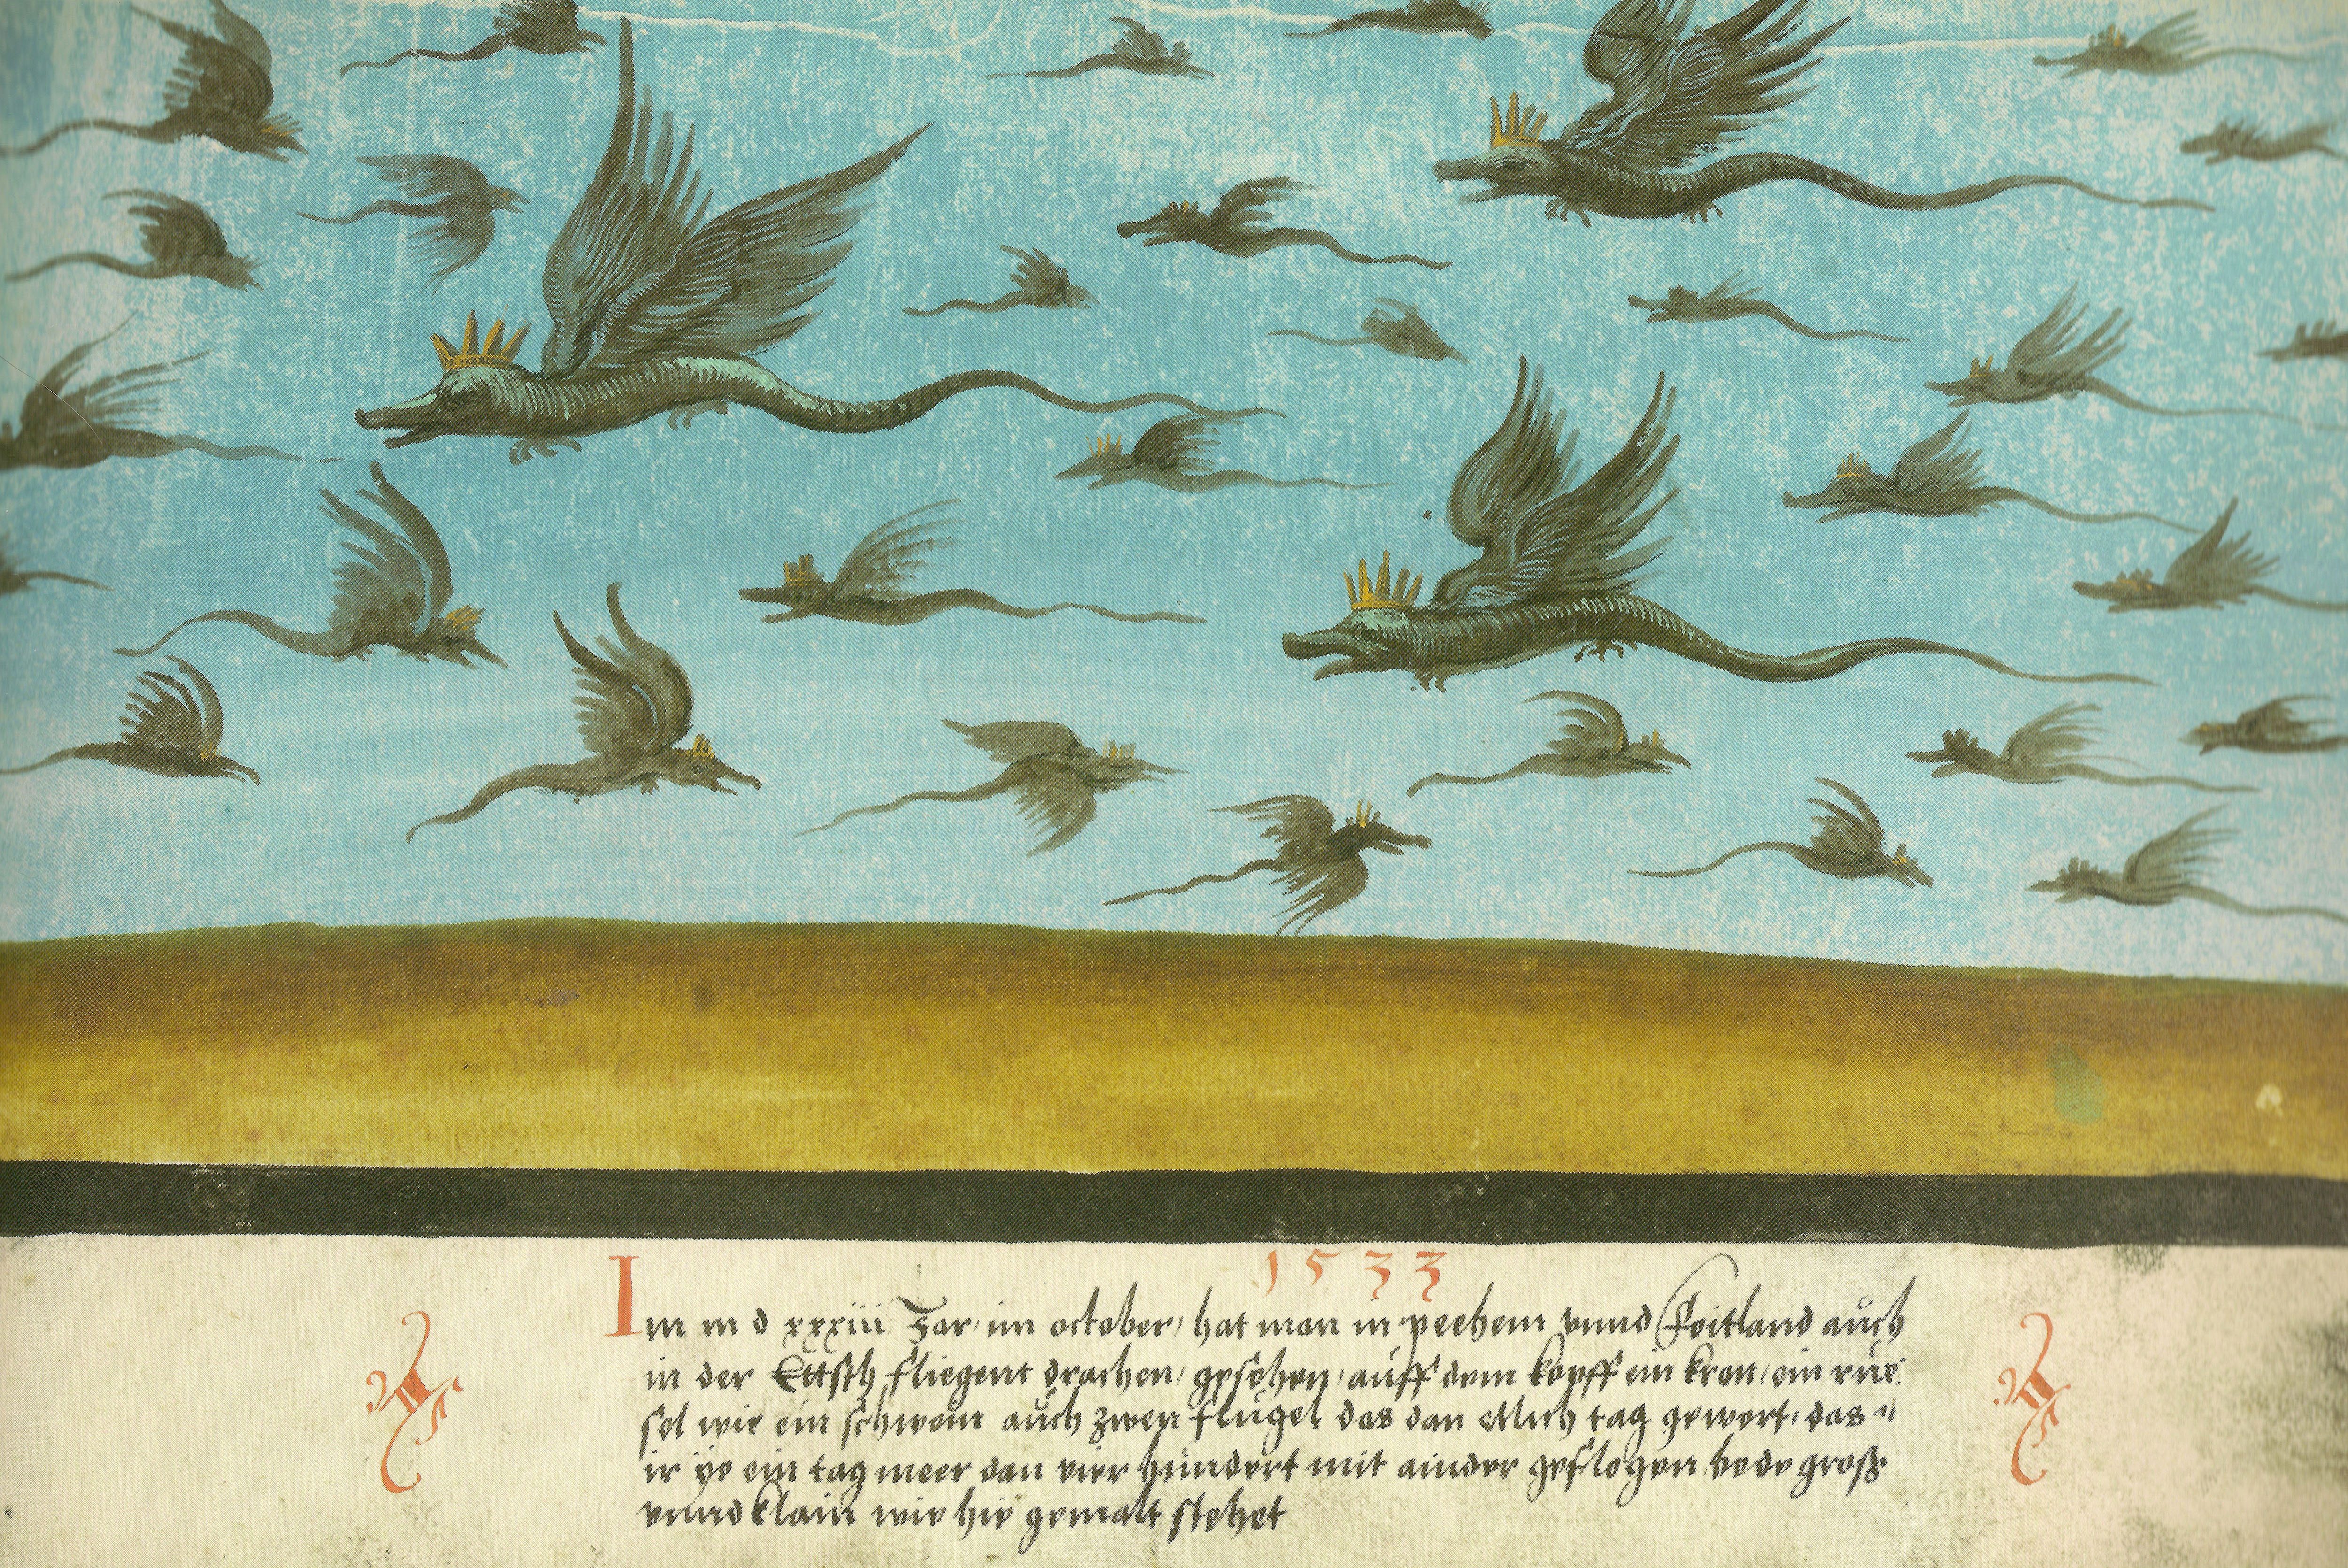 1533
Im m d xxxiii Jar, im october, hat man in peehem vnnd Foitland auch
in der Ettsch fliegent drachen, gesehen, auff dem kopff ein kron, ein rüe:
sel wie ein schwein auch zwen flügel das dan etlich tag gewert, das "
ir ye ein tag meer dan vier hundert mit ainder geflogen bede groß
vnnd klain wie hie gemalt stehet